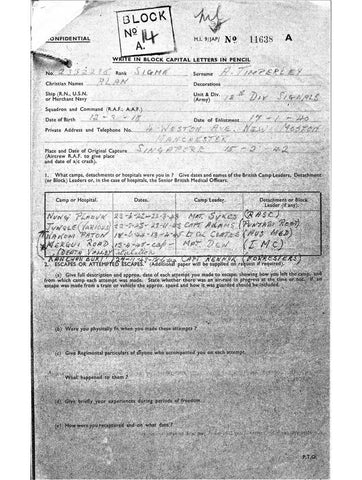 BLOCK
No 14
A.
CONFIDENTIAL
M.I. 9/JAP/ No 11638 A
WRITE IN BLOCK CAPITAL LETTERS IN PENCIL
No. Rank SIGMN Surname A. TIMPERLEY
Christian Names ALAN Decorations
Ship (R.N., U.S.N. or Merchant Navy Unit & Div. (Army) 18th DIV SIGNALS
Squadron and Command (R.A.F.; A.A.F.)
Date of Birth 12-3-18 Date of Enlistment 17-1-40
Private Address and Telephone No. 4 WESTON AVE. NEW MOSTON
MANCHESTER
Place and Date of Original Capture SINGAPORE 15-2-42
(Aircrew R.A.F. to give place
and date of a/c crash).
1. What camps, detachments or hospitals were you in? Give dates and names of the British Camp Leaders, Detachment
(or Block) Leaders or, in case of hospitals, the Senior British Medical Officers.
Camp or Hospital. Dates. Camp Leader. Detachments or Block Leader (if any).
NONG PLADUK MAJ. SYKES (RASC)
JUNGLE CAPT ADAMS (PUNJABI REGT)
NAKOM PATON (AUS MED)
MERGUI ROAD (I.M.C)
2. ESCAPES OR ATTEMPTED ESCAPES. (Additional paper will be supplied on request if required).
(a) Give full description and approx. date of each attempt you made to escape, showing how you left the camp, and
from which camp each attempt was made. State whether there was an armistice in progress at the time or not. If an
escape was made from a train or vehicle the approx. speed and how it was guarded should be included.
(b) Were you physically fit when you made these attempts?
(c) Give Regimental particulars of anyone who accompanied you on each attempt.
What happened to them?
(d) Give briefly your experiences during periods of freedom.
(e) How were you recaptured and on what date?
P.T.O.